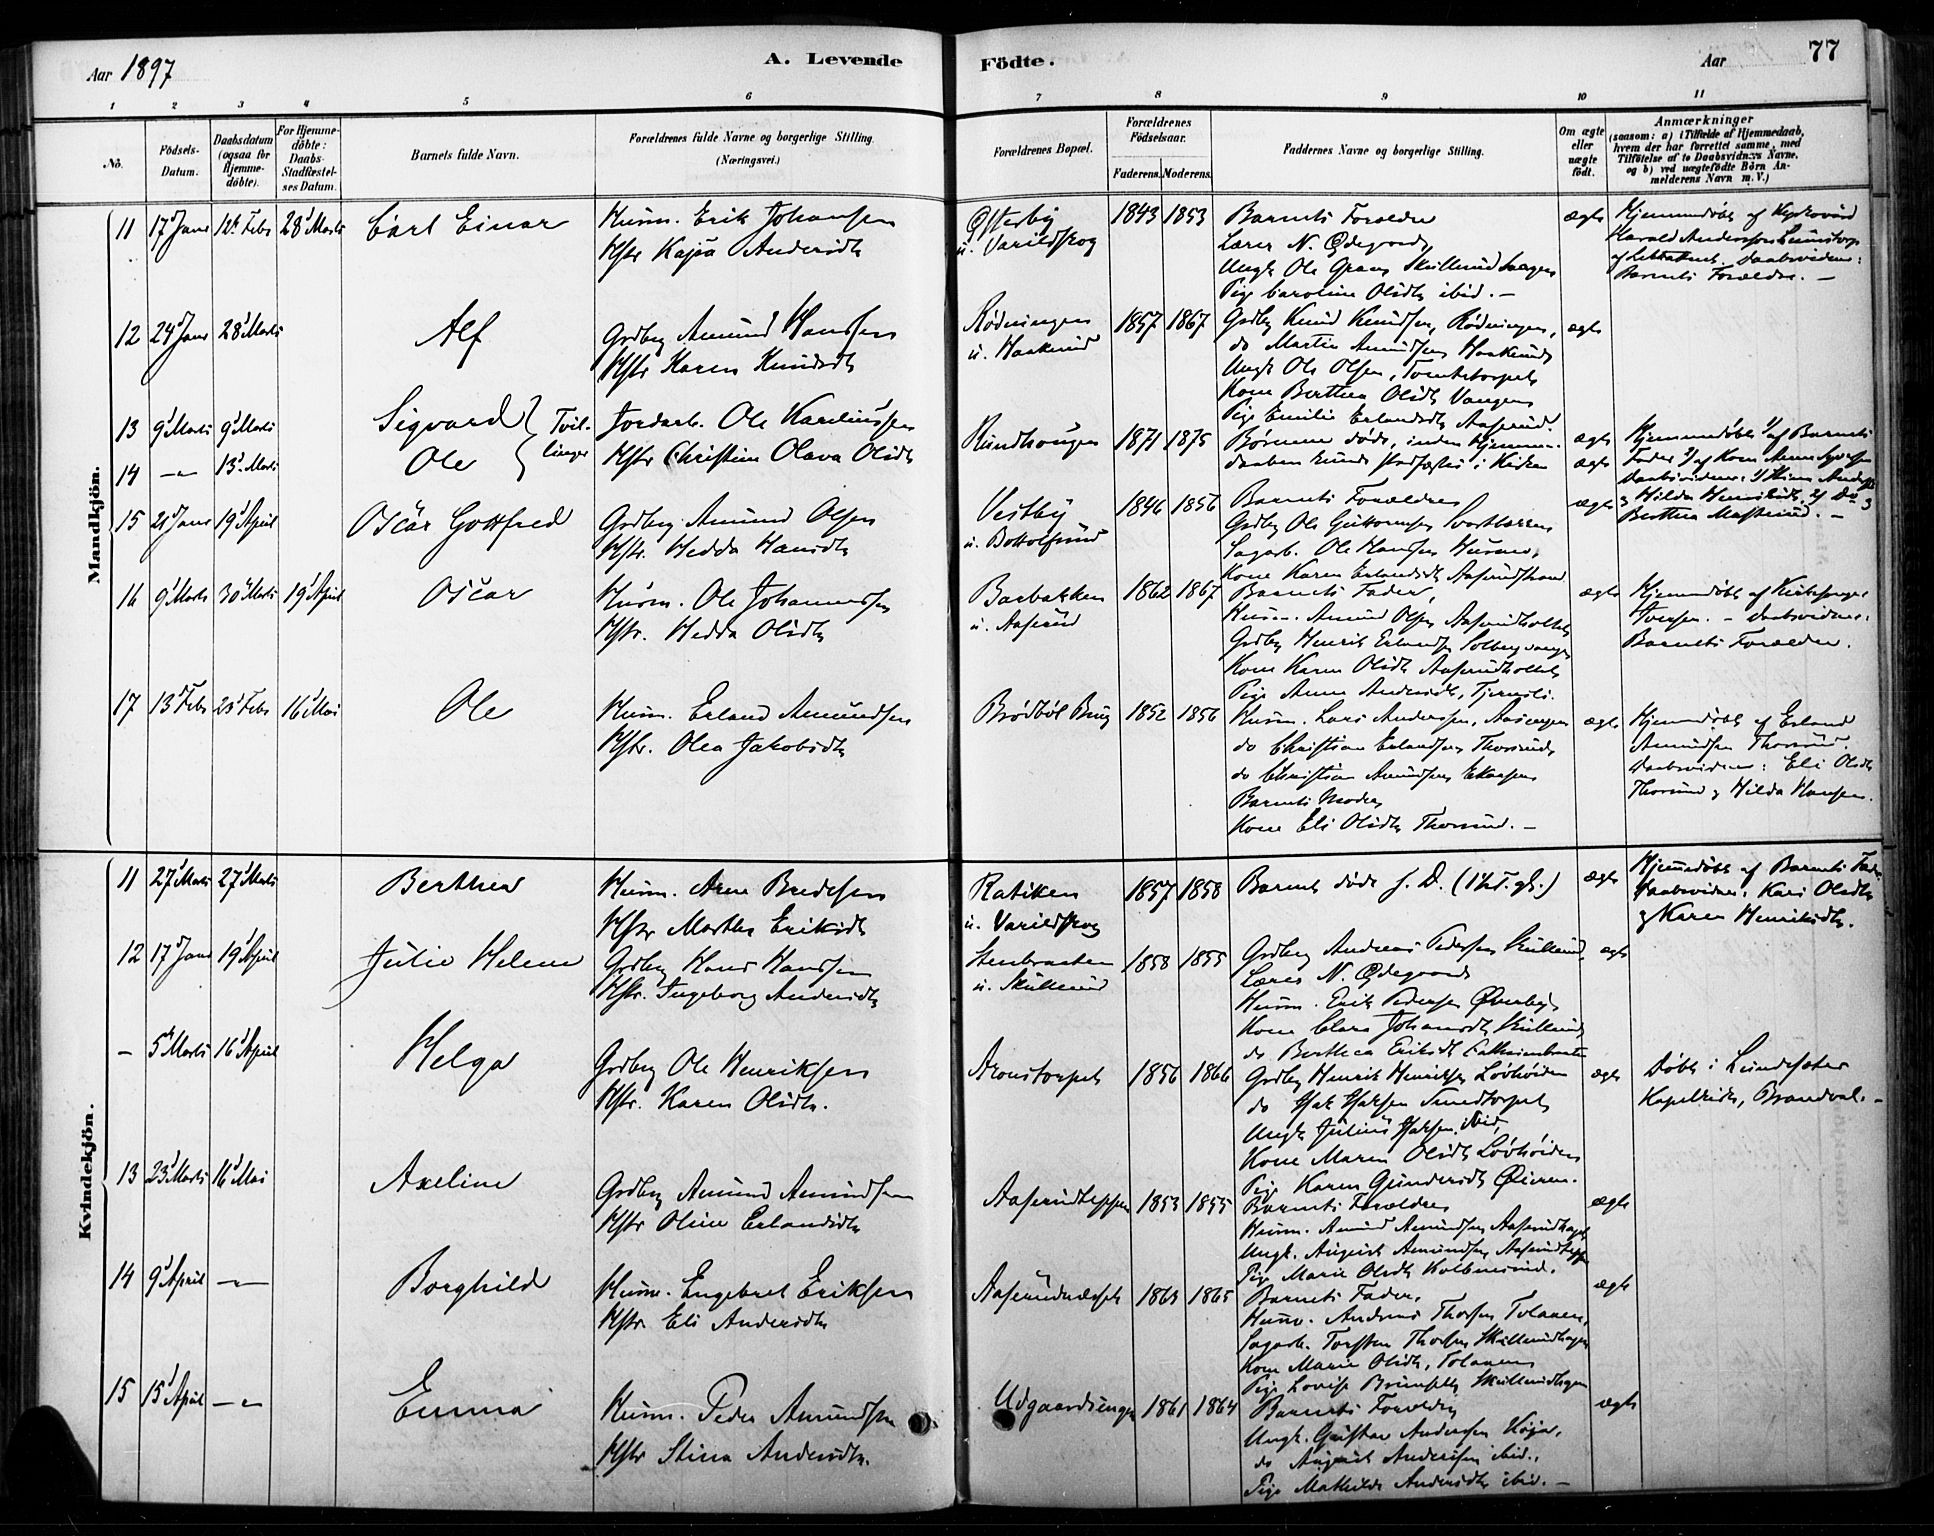 Aar 1897
A. Levende
Födte.
Aar
77
1 2 3 4 5 6 7 8 9 10 11
No.
Födsels-Datum.
Daabsdatum (ogsaa for Hjemme-döbte).
For Hjemme-döbte: Daabs-Stadfæstel-ses Datum.
Barnets fulde Navn.
Forældrenes fulde Navne og borgerlige Stilling.
(Næringsvei.)
Forældrenes Bopæl.
Forældrenes Födselsaar.
Faderens. Moderens.
Faddernes Navne og borgerlige Stilling.
Om ægte eller uægte födt.
Anmærkninger
(saasom: a) i Tilfælde af Hjemmedaab, hvem der har forrettet samme, med Tilföielse af to Daabsvidners Navne, og b) ved uægtefödte Börn Anmelderens Navn m. V.)
Mandkjön.
11 17 Janr 12 Febr 28 Marts Carl Einar
Husm. Erik Johansen
Hstr Kajsa Andersdtr
Østerby
u. Varildskog
1843 1853
Barnets Forældre
Lærer N. Ødegaard,
Pige Caroline Olsdtr ibid. —
ægte
Barnets Forældre. —
12 24 Janr 28 Marts Alf
Grdbrg Amund Hansen
Hstr Karen Knudsdtr
Rødningen
1857 1867
Grdbrg Knud Knudsen, Rødningen,
do Martin Amundsen
Ungk Ole Olsen,
Kone Berthea Olsdtr Vangen
Pige Emilie Erlandsdtr Aaserud.
ægte
13 9 Marts 9 Marts Sigvard } Tvil-
14 —"— 13 Marts Ole } linger
Jordarb. Ole Kareliussen
Hstr Christine Olava Olsdtr
Rundhougen
1871 1875
Børnene døde, inden Hjemme-
daaben kunde stadfæstes i Kirken
ægte
ægte
Hjemmedøbt 1/ af Barnets
Fader 2/ af Kone
15 21 Janr 19 April Oscar Gottfred
Grdbrg Amund Olsen
Hstr. Hedda Hansdtr
Vestby
u. Bottolfsrud
1846 1856
Barnets Forældre
Grdbrg Ole Guttormsen
Sagarb. Ole Hansen
Kone Karen Erlandsdtr Aaserudstrand
ægte
16 9 Marts 30 Marts 19 April Oscar
Husm. Ole Johannessen
Hstr. Hedda Olsdtr
Barbakken
u. Aaserud
1862 1867
Barnets Fader,
Husm. Amund Olsen Aaserudholtet
Grdbrg Henrik Erlandsen
Kone Karen Olsdtr Aaserudholtet
Pige Anne Andersdtr,
ægte
Hjemmedøbt af Kirkesanger
Iversen. — Daabsvidner:
Barnets Forældre.
17 13 Febr 25 Febr 16 Mai Ole
Husm. Erland Amundsen
Hstr. Olea Jakobsdtr
Brødbøl Brug
1852 1856
Husm. Lars Andersen,
do Christian Erlandsen Thorsrud,
do Christian Amundsen
Barnets Moder,
Kone Eli Olsdtr Thorsrud. —
ægte
Hjemmedøbt af Erland
Amundsen Thorsrud.
Daabsvidner: Eli Olsdtr
Thorsrud og Hilda Hansen.
Kvindekjön.
11 27 Marts 27 Marts Berthea
Husm. Arne Bredesen
Hstr Marthe Eriksdtr
Ratiken
u. Varildskog
1857 1858
Barnet døde s. D.
ægte
Hjemmedøbt af Barnets Fader.
Daabsvidner: Kari Olsdtr
og Karen Henriksdtr.
12 17 Janr 19 April Julie Helene
Grdbrg Hans Hansen
Hstr. Ingeborg Andersdtr
Stenbraaten
u. Skullerud
1858 1855
Grdbrg Andreas Pedersen Skullerud,
Lærer N. Ødegaard
Husm. Erik Pedersen Øverby,
Kone Clara Johansdtr Skullerud,
do Berthea Eriksdtr
ægte
— 5 Marts 16 April Helga
Grdbrg Ole Henriksen
Hstr. Karen Olsdtr.
Aronstorpet
1856 1866
Grdbrg Henrik Henriksen Løvhøiden
Ungk Julius ibid,
Kone Maren Olsdtr Løvhøiden
Pige Karen Gundersdtr Øieren.
ægte
Døbt i Lundersæter
Kapelkirke, Brandval. —
13 23 Marts 16 Mai Axeline
Grdbrg Amund Amundsen
Hstr Oline Erlandsdtr
Aaserudteppen
1853 1855
Barnets Forældre
Husm. Amund Amundsen Aaserudhaget
Ungk. August Amundsen Aaserudteppen
Pige Marie Olsdtr
ægte
14 9 April —"— Borghild
Husm. Engebret Eriksen
Hstr Eli Andersdtr
Aaserudnæsset
1863 1865
Barnets Fader,
Husm. Andreas Thorsen Tolaaen,
Sagarb. Torsten Thorsen Skullerudhagen
Kone Marie Olsdtr, Tolaaen
Pige Lovise Skullerudhagen
ægte
15 15 April —"— Emma
Husm. Peder Amundsen
Hstr Stina Andersdtr.
Udgaardsengen
1861 1864
Barnets Forældre
Ungk. Gustav Andersen
do August Andersen ibid.,
Pige Mathilde Andersdtr ibid. —
ægte